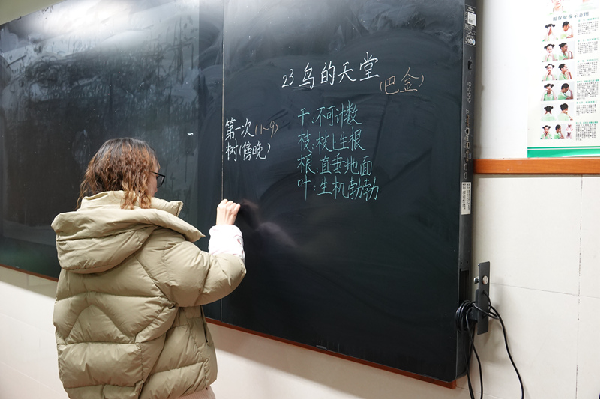 23 鸟的天堂
(巴金)
第一次(1~9)
树(傍晚)
干:不可计数
枝:树上生根
根:直垂地面
叶:生机勃勃